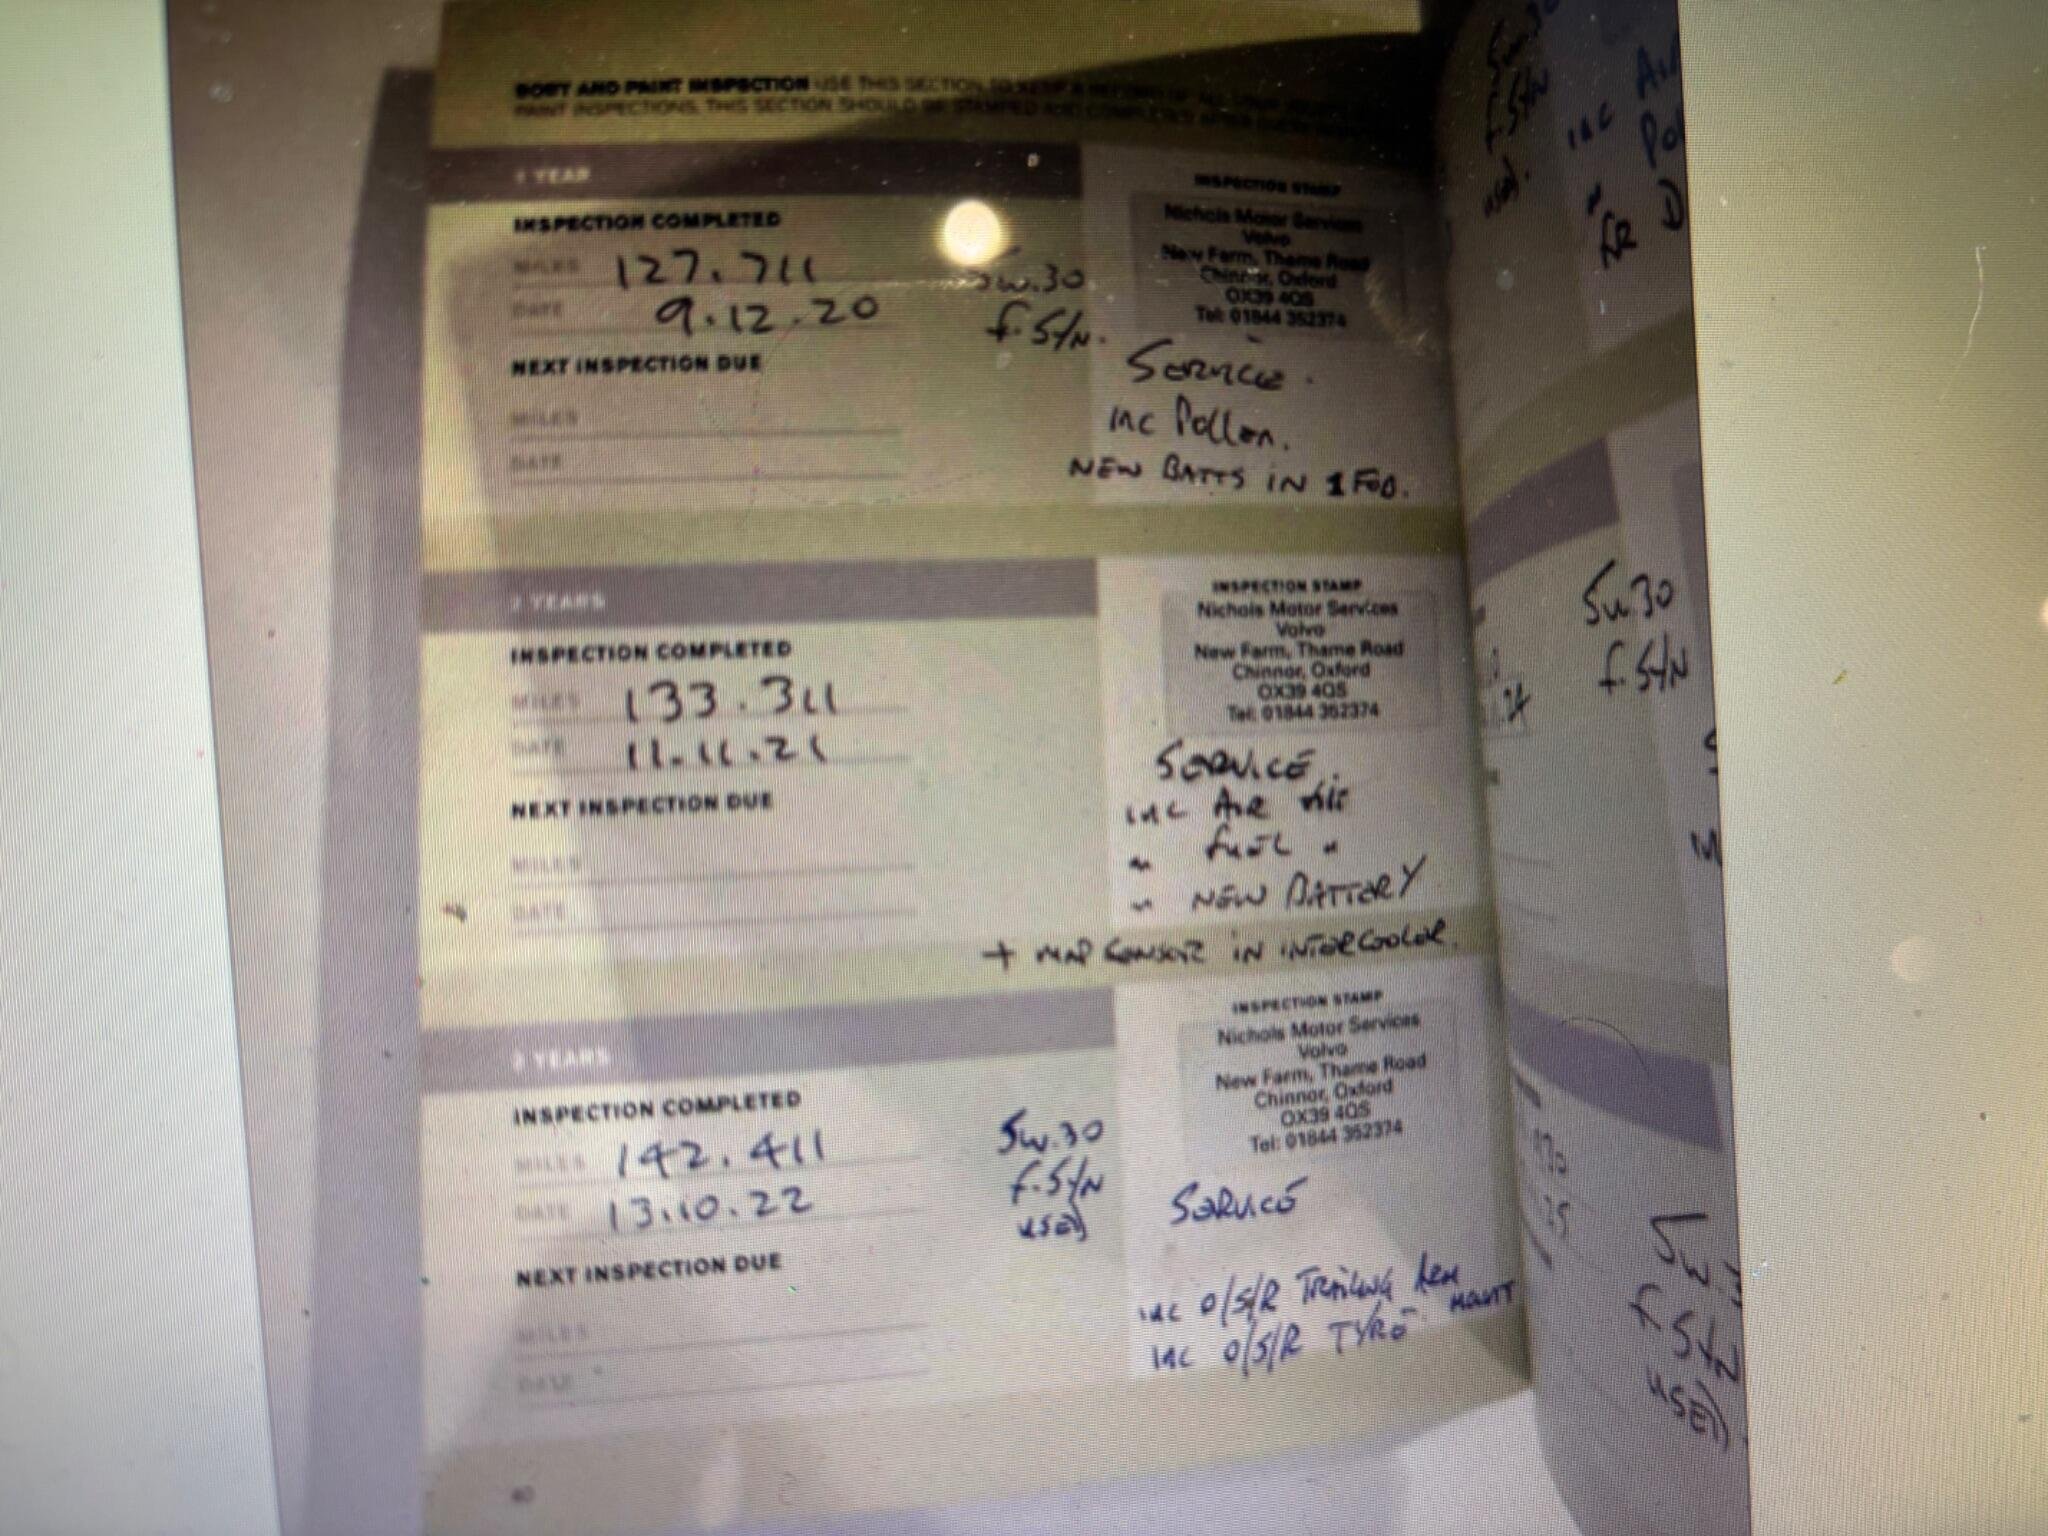 BODY AND PAINT INSPECTION USE THIS SECTION TO KEEP A RECORD OF ALL YOUR
PAINT INSPECTIONS. THIS SECTION SHOULD BE STAMPED AND COMPLETED AFTER EVERY
1 YEAR
INSPECTION STAMP
INSPECTION COMPLETED
Nichols Motor Services
Volvo
New Farm, Thame Road
Chinnor, Oxford
OX39 4QS
Tel: 01844 352374
MILES 127.711
5w.30
DATE 9.12.20
f.SYN.
NEXT INSPECTION DUE
MILES
DATE
SERVICE.
INC Pollen.
NEW BATTS IN 1 FOB.
2 YEARS
INSPECTION STAMP
Nichols Motor Services
Volvo
New Farm, Thame Road
Chinnor, Oxford
OX39 4QS
Tel: 01844 352374
INSPECTION COMPLETED
MILES 133.311
DATE 11.11.21
NEXT INSPECTION DUE
MILES
DATE
SERVICE.
INC AIR
" FUEL "
" NEW BATTERY
+ MAP SENSOR IN INTERCOOLER.
3 YEARS
INSPECTION STAMP
Nichols Motor Services
Volvo
New Farm, Thame Road
Chinnor, Oxford
OX39 4QS
Tel: 01844 352374
INSPECTION COMPLETED
MILES 142.411
DATE 13.10.22
5w.30
f.SYN
USED
NEXT INSPECTION DUE
MILES
DATE
SERVICE
INC O/S/R TRAILING ARM MOUNT
INC O/S/R TYRE
40
5w.30
f.SYN
USED.
INC
" FR D
5w.30
f.SYN
5w.3
f SYN
USED